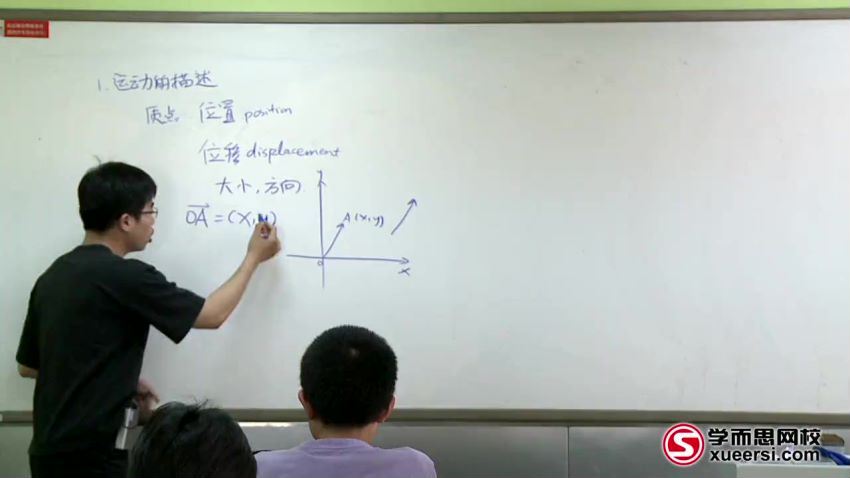 1. 运动的描述
质点 位置 position
位移 displacement
大小,方向
OA = (x, y)
y
A (x, y)
O
x
学而思网校
xueersi.com